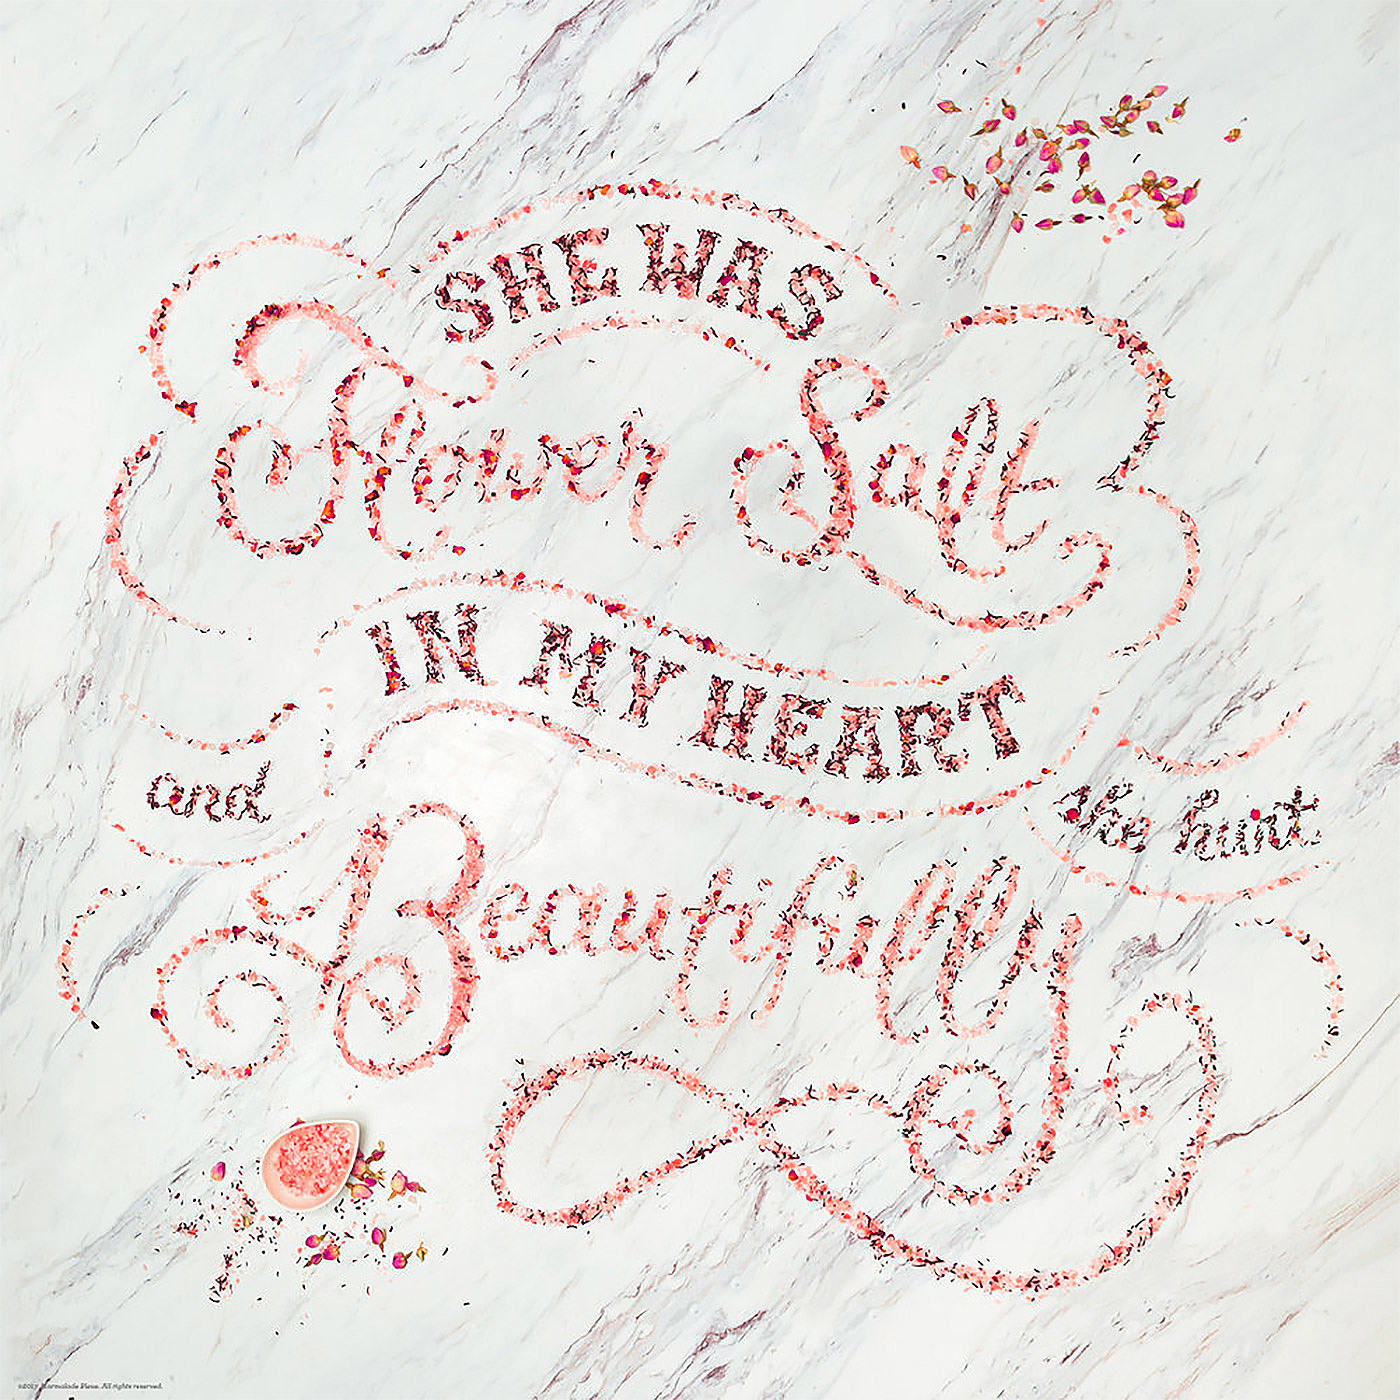 SHE WAS
Flower Salt
IN MY HEART
and
She hurt
Beautifully
©2017 Marmalade Bleue. All rights reserved.